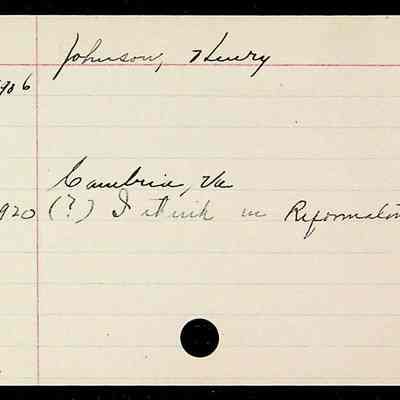 Johnson, Henry
Cambria, Va
(?) I think in Reformator